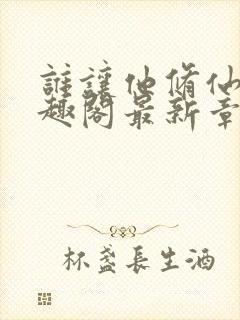 誰讓他脩仙
趣閣最新章
杯盞長生酒